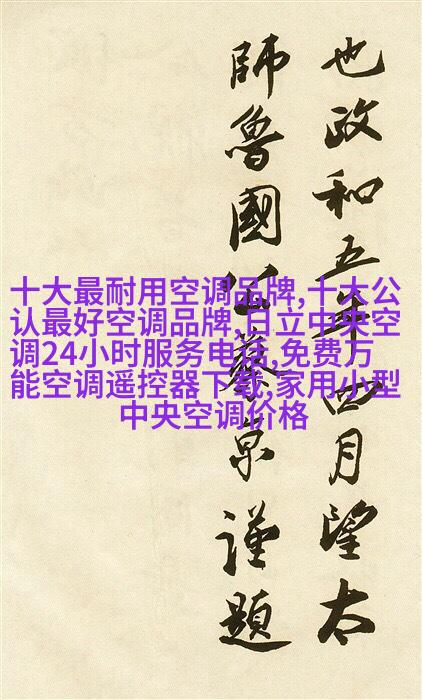 也政和五年四月望太
師魯國公蔡京謹題
十大最耐用空调品牌,十大公
认最好空调品牌,日立中央空
调24小时服务电话,免费万
能空调遥控器下载,家用小型
中央空调价格